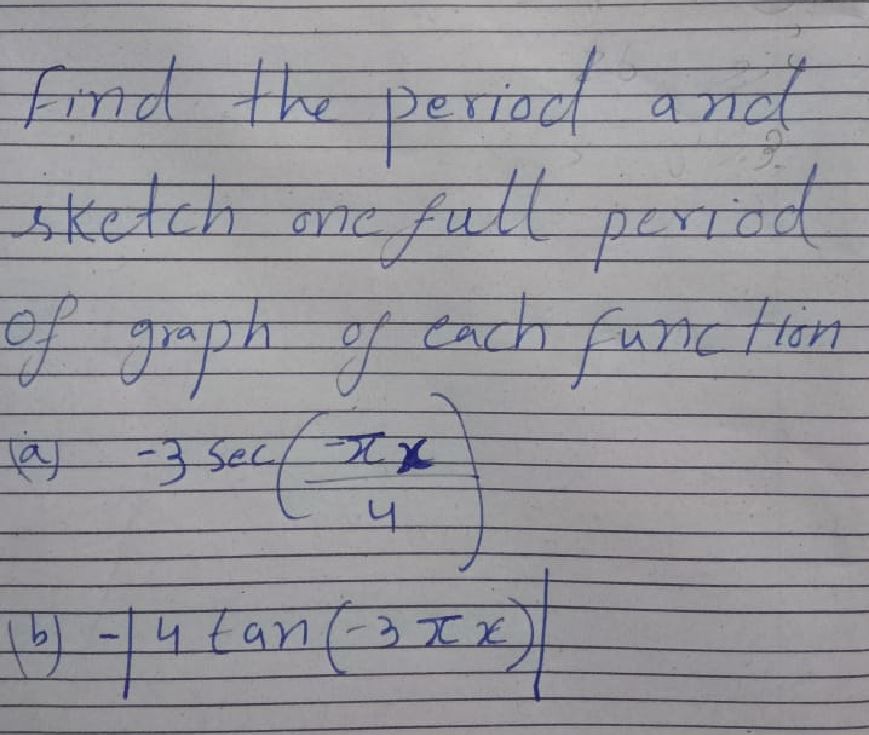 Find the period and
sketch one full period
of graph of each function
(a) -3 sec(-πx/4)
(b) -|4 tan(-3πx)|